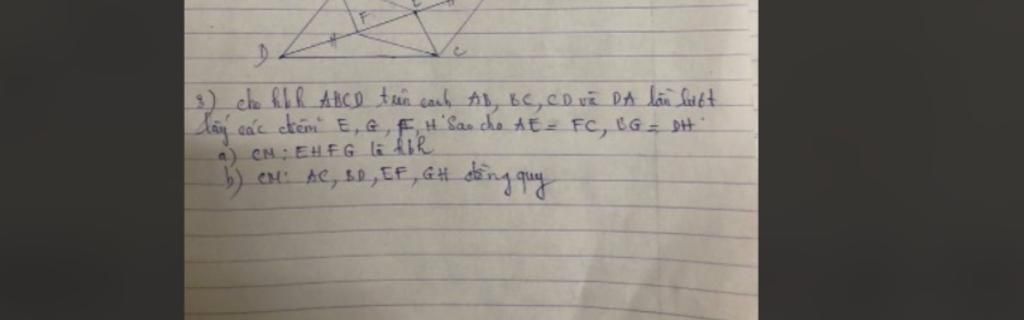 F
E
D
C
3) cho hbh ABCD trên cạnh AB, BC, CD và DA lần lượt
lấy các điểm E, G, F, H sao cho AE = FC, BG = DH
a) CM: EHFG là hbh
b) CM: AC, BD, EF, GH đồng quy